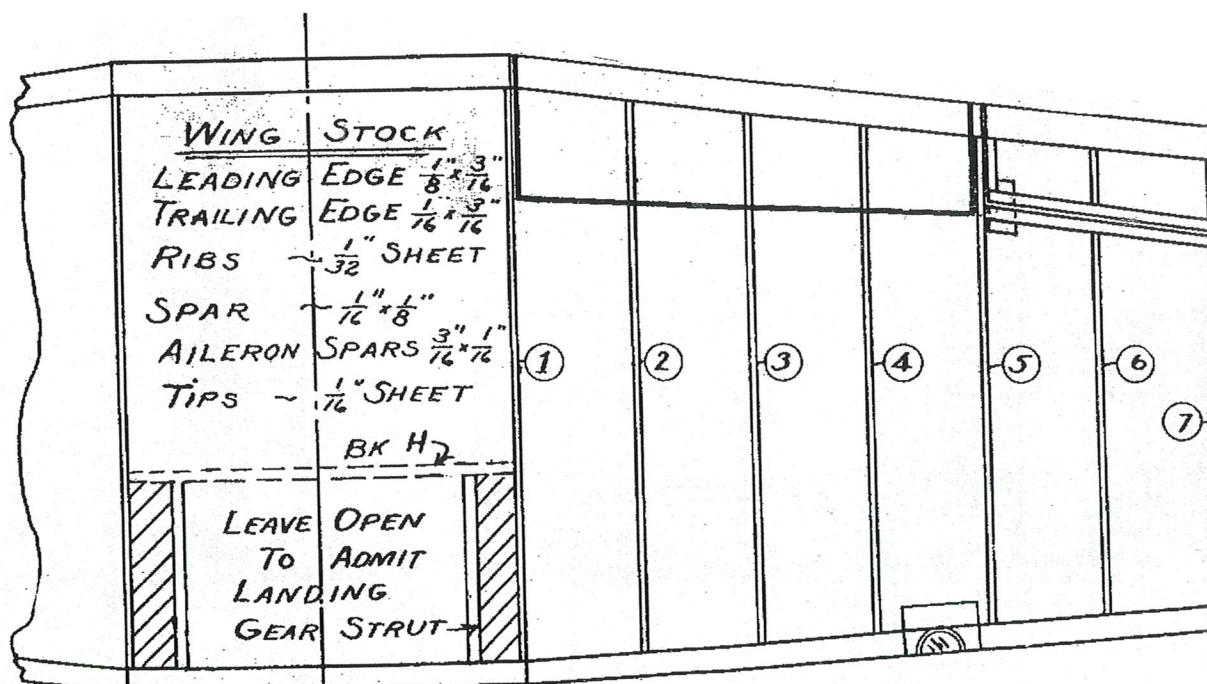 WING STOCK
LEADING EDGE 1/8" x 3/16"
TRAILING EDGE 1/16 x 3/16"
RIBS ~ 1/32" SHEET
SPAR ~ 1/16" x 1/8"
AILERON SPARS 3/16" x 1/16"
TIPS ~ 1/16" SHEET
1 2 3 4 5 6
7
BK H
LEAVE OPEN
TO ADMIT
LANDING
GEAR STRUT